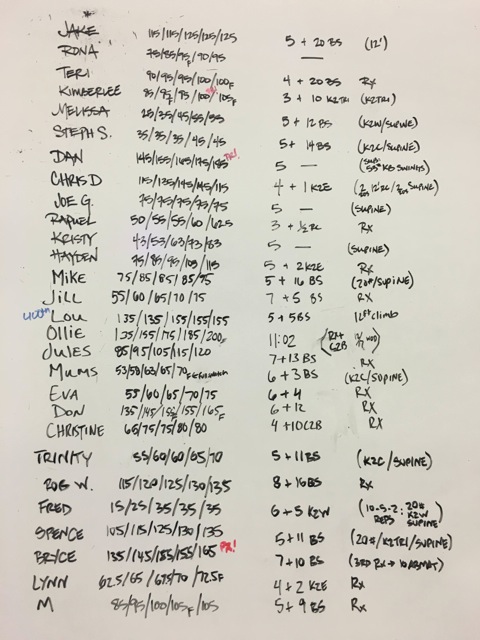 JAKE 115/115/125/125/125 5 + 20 BS (12')
RONA 75/85/95F/90/95 —
TERI 90/95/95/100/100F 4 + 20 BS Rx
KIMBERLEE 85/95F/95/100/105F 3 + 10 K2TRI (K2TRI)
MELISSA 25/35/45/55/55 5 + 12 BS (K2W/SUPINE)
STEPH S. 35/35/35/45/45 5 + 14 BS (K2C/SUPINE)
DAN 145/155/165/175/185 PR! 5 — (SUB: 55# KB SWINGS)
CHRIS D 115/125/145/145/115 4 + 1 K2E SUPINE)
JOE G. 75/75/75/75/75 5 — (SUPINE)
RAQUEL 50/55/55/60/62.5 3 + ½ RC Rx
KRISTY 43/53/63/73/83 5 — (SUPINE)
HAYDEN 75/85/95/105/115 5 + 2 K2E Rx
MIKE 75/85/85/85/95 5 + 16 BS (20#/SUPINE)
JILL 55/60/65/70/75 7 + 5 BS Rx
400m LOU 135/135/155/155/155 5 + 5BS 12ft climb
OLLIE 135/155/175/185/200F 11:02 (RX+ C2B WOD)
JULES 85/95/105/115/120 7 + 13 BS Rx
MUMS 53/58/63/65/70 6 + 3 BS (K2C/SUPINE)
EVA 55/60/65/70/75 6 + 4 Rx
DON 135/145/155F/155/165F 6 + 12 Rx
CHRISTINE 65/75/75/80/80 4 + 10 C2B Rx
TRINITY 55/60/60/65/70 5 + 11 BS (K2C/SUPINE)
ROB W. 115/120/125/130/135 8 + 16 BS Rx
FRED 15/25/35/35/35 6 + 5 K2W (10-5-2 REPS: 20# K2W SUPINE)
SPENCE 105/115/125/130/135 5 + 11 BS (20#/K2TRI/SUPINE)
BRYCE 135/145/155/155/165 PR! 7 + 10 BS (3RD Rx → 10 ABMAT)
LYNN 62.5/65/67.5/70/72.5F 4 + 2 K2E Rx
M 85/95/100/105F/105 5 + 9 BS Rx